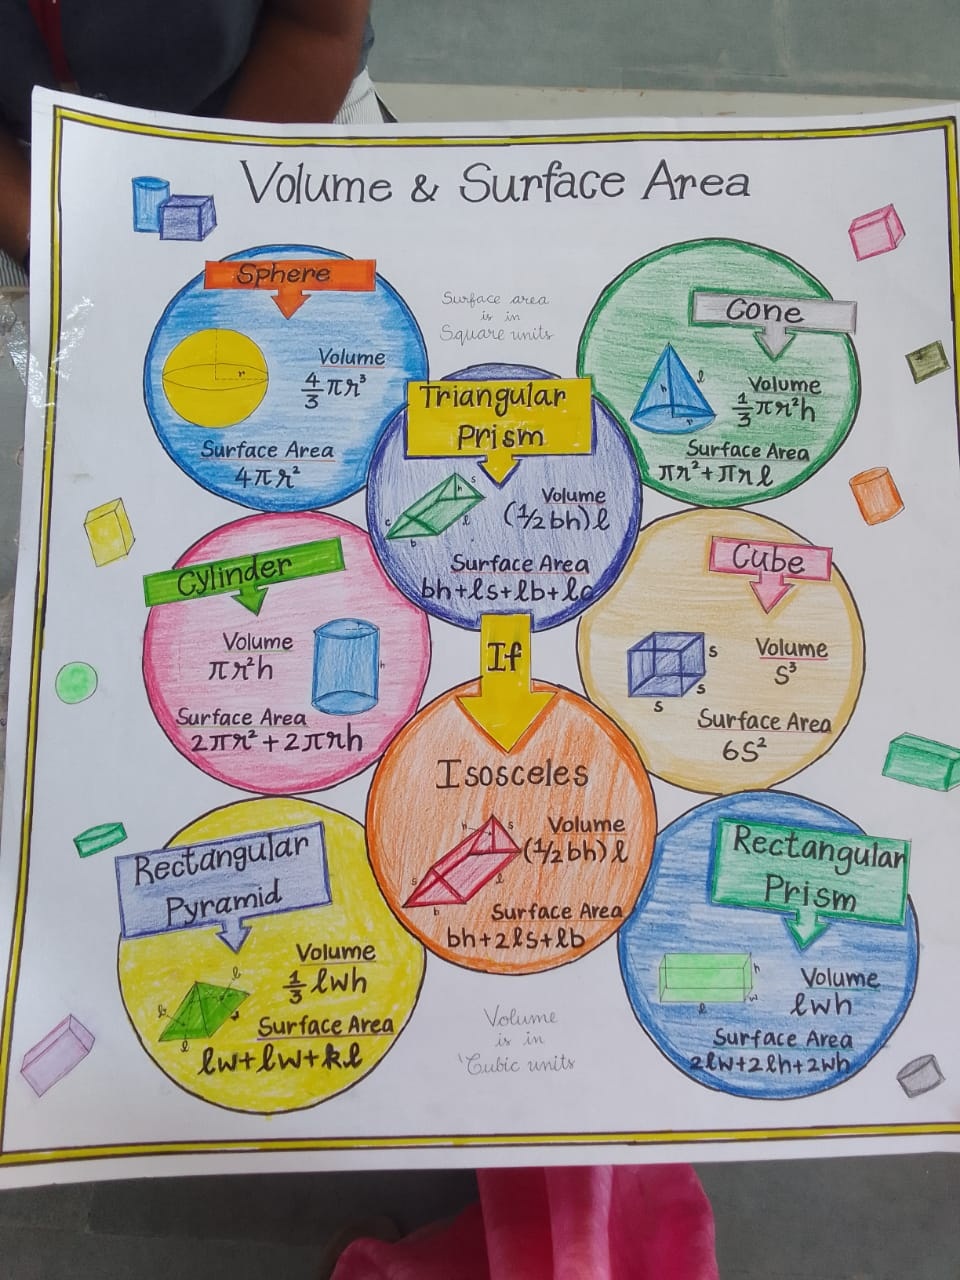 Volume & Surface Area
Sphere
Volume
4/3 πr³
Surface Area
4πr²
Surface area
is in
Square units
Cone
h
l
r
Volume
1/3 πr²h
Surface Area
πr²+πrl
Triangular
Prism
h
s
c
l
b
Volume
(1/2 bh)l
Surface Area
bh+ls+lb+lc
Cylinder
Volume
πr²h
h
Surface Area
2πr²+2πrh
Cube
s
s
s
Volume
S³
Surface Area
6S²
If
Isosceles
h
s
s
l
b
Volume
(1/2 bh)l
Surface Area
bh+2ls+lb
Rectangular
Pyramid
Volume
1/3 lwh
l
Surface Area
lw+lw+kl
Rectangular
Prism
h
w
l
Volume
lwh
Surface Area
2lw+2lh+2wh
Volume
is in
Cubic units